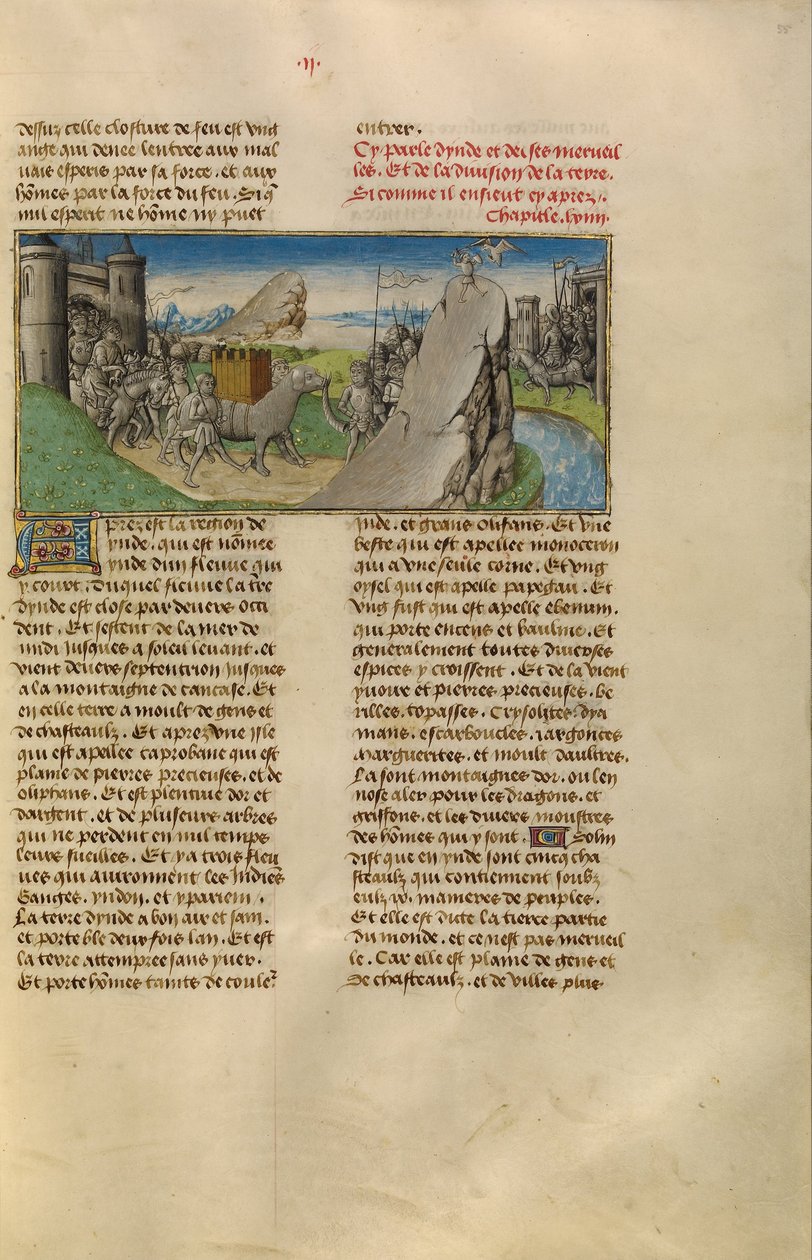 .ii.
55
dessuz celle closture de feu est vng
ange qui denee lentree aux mal
uais esperis par sa force. et aux
hōmes par la force du feu. Si q̄
mil esperit ne hōme ny puet
entrer.
Cy parle dynde et de ses merueil
les. Et de la diuision de la terre.
Si comme il ensieut cy aprez.
Chapitle. xviii.
Aprez est la region de
ynde. qui est nōmee
ynde dun fleuue qui
y court. duquel fleuue la tr̄e
dynde est close par deuers occi
dent. Et sestent de la mer de
midi jusques a soleil leuant. et
vient deuers septentrion jusques
a la montaigne de caucase. Et
en celle terre a moult de gens et
de chasteaulz. Et aprez vne isle
qui est apellee taprobane qui est
plaine de pierres precieuses. et de
oliphans. Et est plentiue dor et
dargent. et de pluseurs arbres
qui ne perdent en nul temps
leurs fueilles. Et y a trois fleu
ues qui auironnent les Indiēs
Ganges. yndon. et ypariem.
La terre dynde a bon air et sain.
et porte ble deux fois lan. Et est
la terre attempree sans yuer.
Et porte hōmes taints de coule
Inde. et grans olifans. Et vne
beste qui est apellee monoceron
qui a vne seule corne. Et vng
oysel qui est apelle papegau. Et
vng fust qui est apelle ebenum.
qui porte encens et baulme. Et
generalement toutes diuerses
espices y croissent. Et de la vient
yuoire et pierres precieuses. be
rilles. topasses. Crysolites. dya
mans. escarboucles. iargonces
Marguerites. et moult daultres.
La sont montaignes dor. ou len
nose aler pour les dragons. et
griffons. et les diuers monstres
des hōmes qui y sont. Solin
dist que en ynde sont cincq cha
steaulz qui contiennent soubz
eulz manieres de peuples.
Et elle est dute la tierce partie
du monde. et ce nest pas merueil
le. Car elle est plaine de gens et
de chasteaulz. et de villes plus